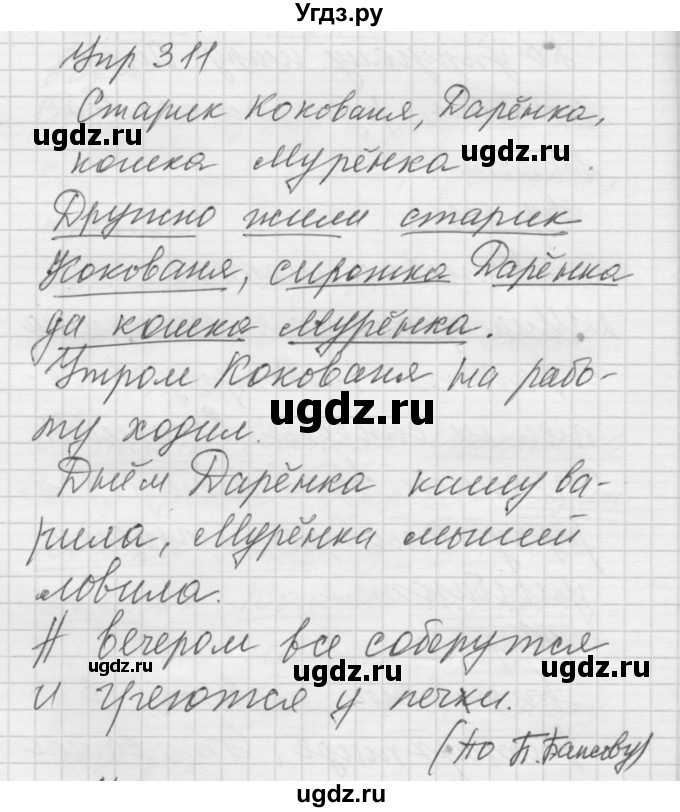 Угдз.ру
Упр 311
Старик Кокованя, Дарёнка,
кошка Мурёнка
Дружно жили старик
Кокованя, сиротка Дарёнка
да кошка Мурёнка.
Утром Кокованя на рабо-
ту ходил.
Днём Дарёнка кашу ва-
рила, Мурёнка мышей
ловила.
А вечером все соберутся
и греются у печки.
(По П. Бажову)
ugdz.ru
ugdz.ru
ugdz.ru
ugdz.ru
ugdz.ru
ugdz.ru
ugdz.ru
ugdz.ru
ugdz.ru